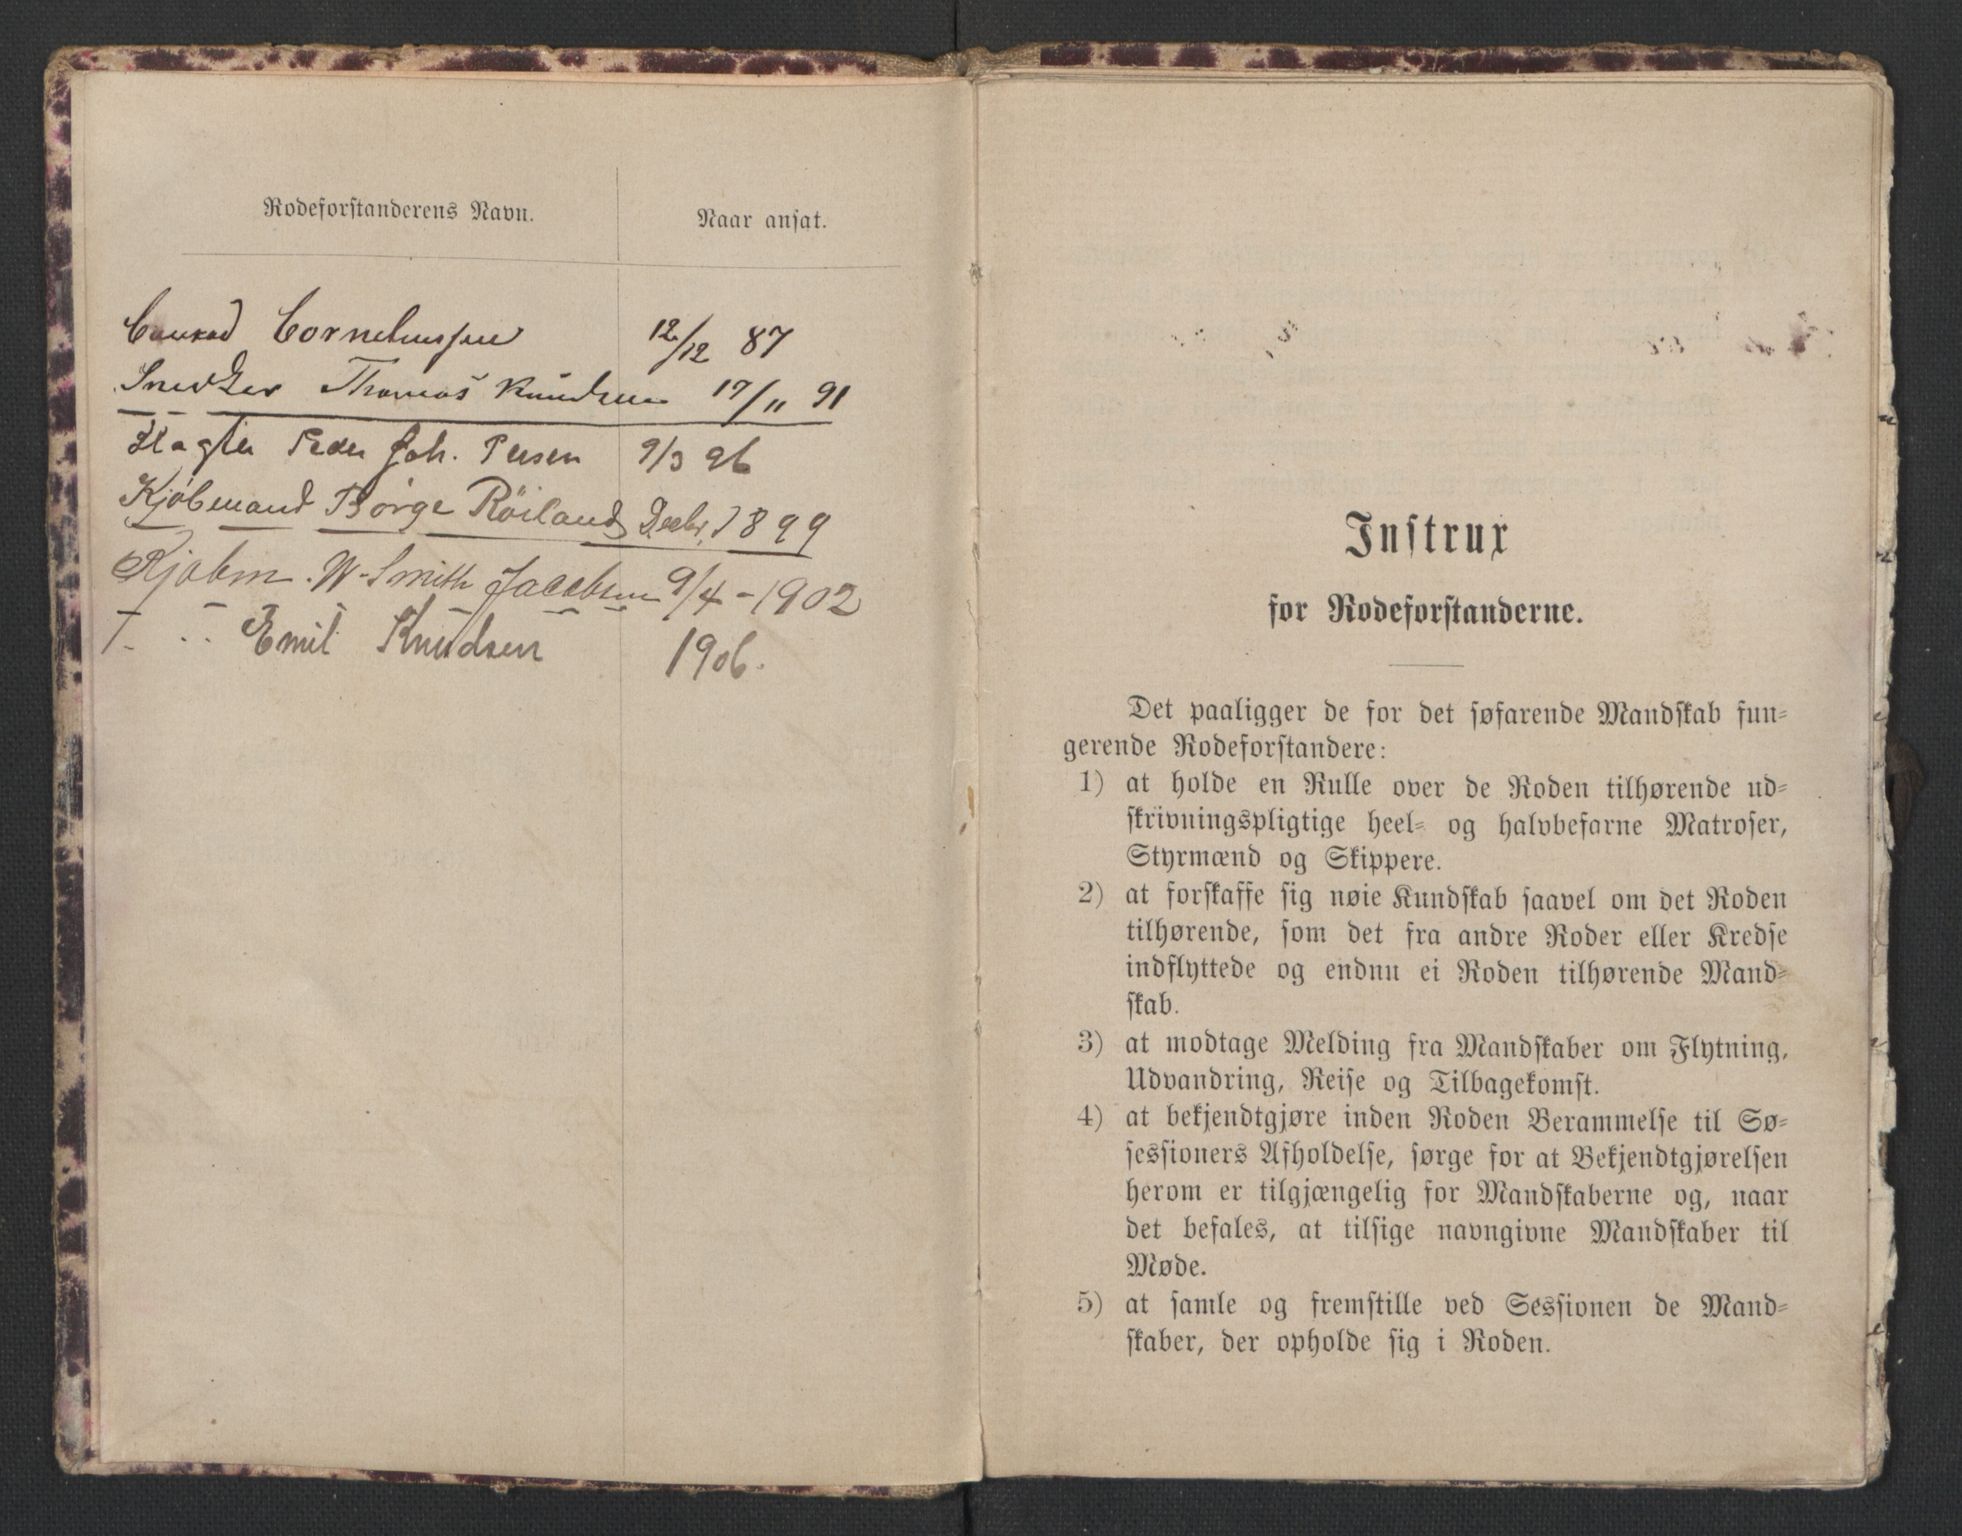 Rodeforstanderens Navn.
Naar ansat.
Conrad Corneliussen 12/12 87
Snedker Thomas Knudsen 17/11 91
Slagter Peder Joh. Persen 9/3 96
Kjøbmand Børge Röiland Decbr. 1899
Kjøbm. W. Smith Jacobsen 9/4-1902
Emil Knudsen 1906.
Instrux
for Rodeforstanderne.
Det paaligger de for det søfarende Mandskab fun-
gerende Rodeforstandere:
1) at holde en Rulle over de Roden tilhørende ud-
skrivningspligtige heel- og halvbefarne Matroser,
Styrmænd og Skippere.
2) at forskaffe sig nøie Kundskab saavel om det Roden
tilhørende, som det fra andre Roder eller Kredse
indflyttede og endnu ei Roden tilhørende Mand-
skab.
3) at modtage Melding fra Mandskaber om Flytning,
Udvandring, Reise og Tilbagekomst.
4) at bekjendtgjøre inden Roden Berammelse til Sø-
sessioners Afholdelse, sørge for at Bekjendtgjørelsen
herom er tilgjængelig for Mandskaberne og, naar
det befales, at tilsige navngivne Mandskaber til
Møde.
5) at samle og fremstille ved Sessionen de Mand-
skaber, der opholde sig i Roden.